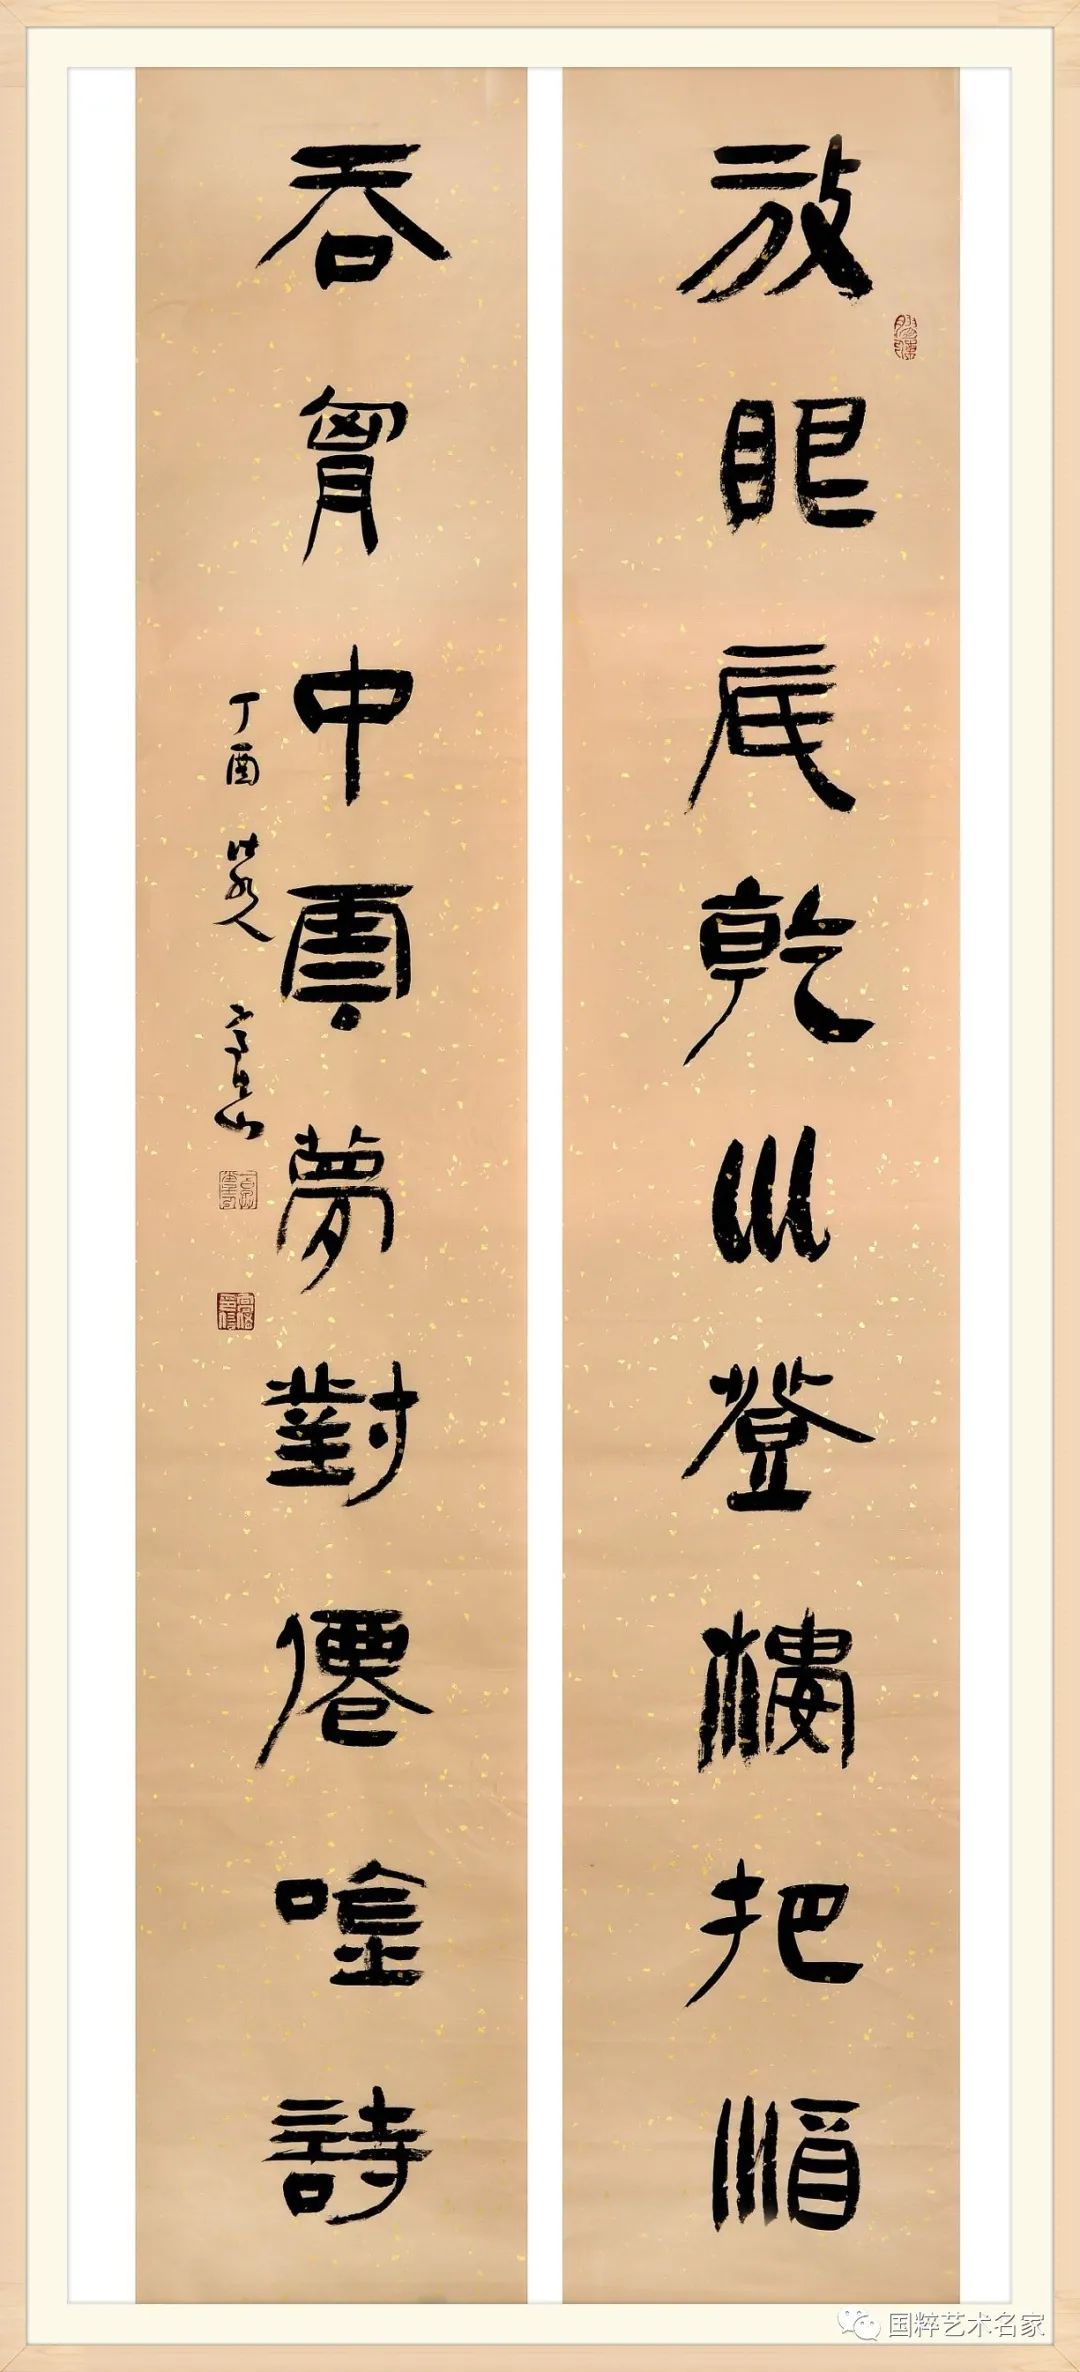 放眼底乾川登樓把酒
吞胷中雲夢對僊唫詩
丁酉
国粹艺术名家